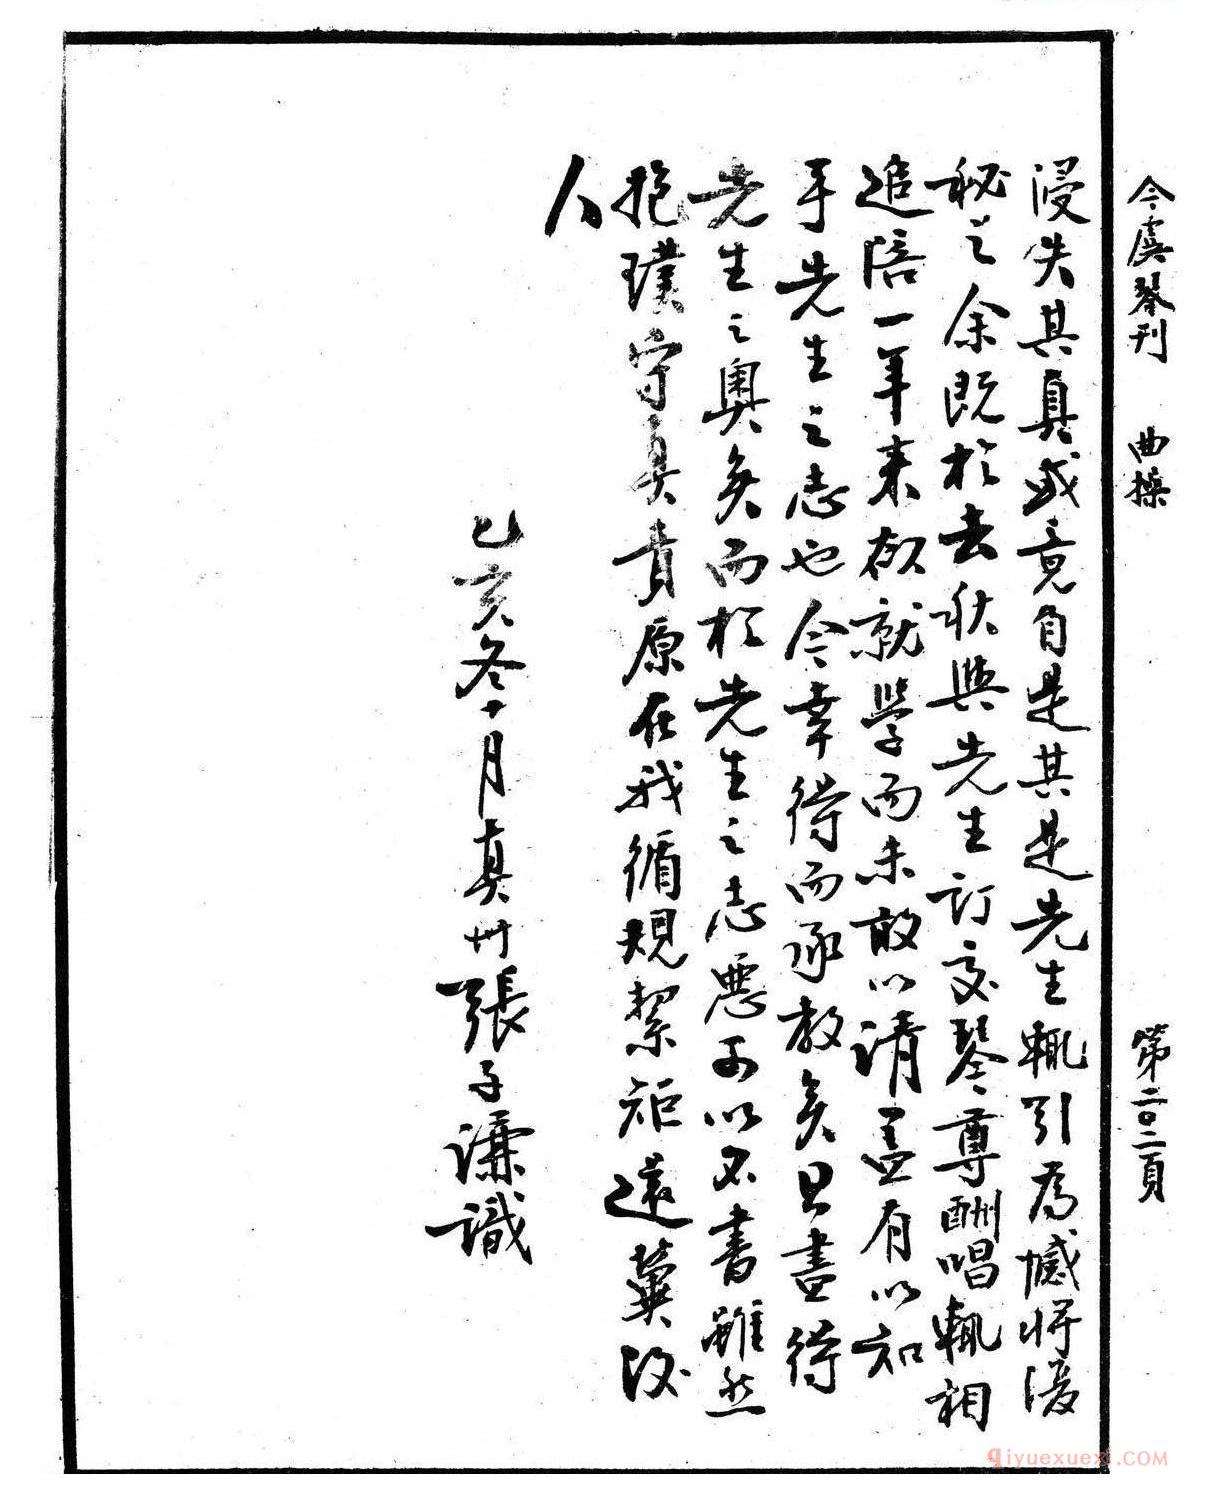 今虞琴刊 曲操 第二〇二頁
浸失其真或竟自是其是先生輒引為憾將復
秘之余既於去秋與先生訂交琴尊酬唱輒相
追陪一年來欲就學而未敢以請蓋有以知
乎先生之志也今幸得而承教矣且盡得
先生之奧矣而於先生之志惡可以不書雖然
抱璞守真責原在我循規絜矩還冀後
人
乙亥冬十月真州張子謙識
qiyuexuexi.COM